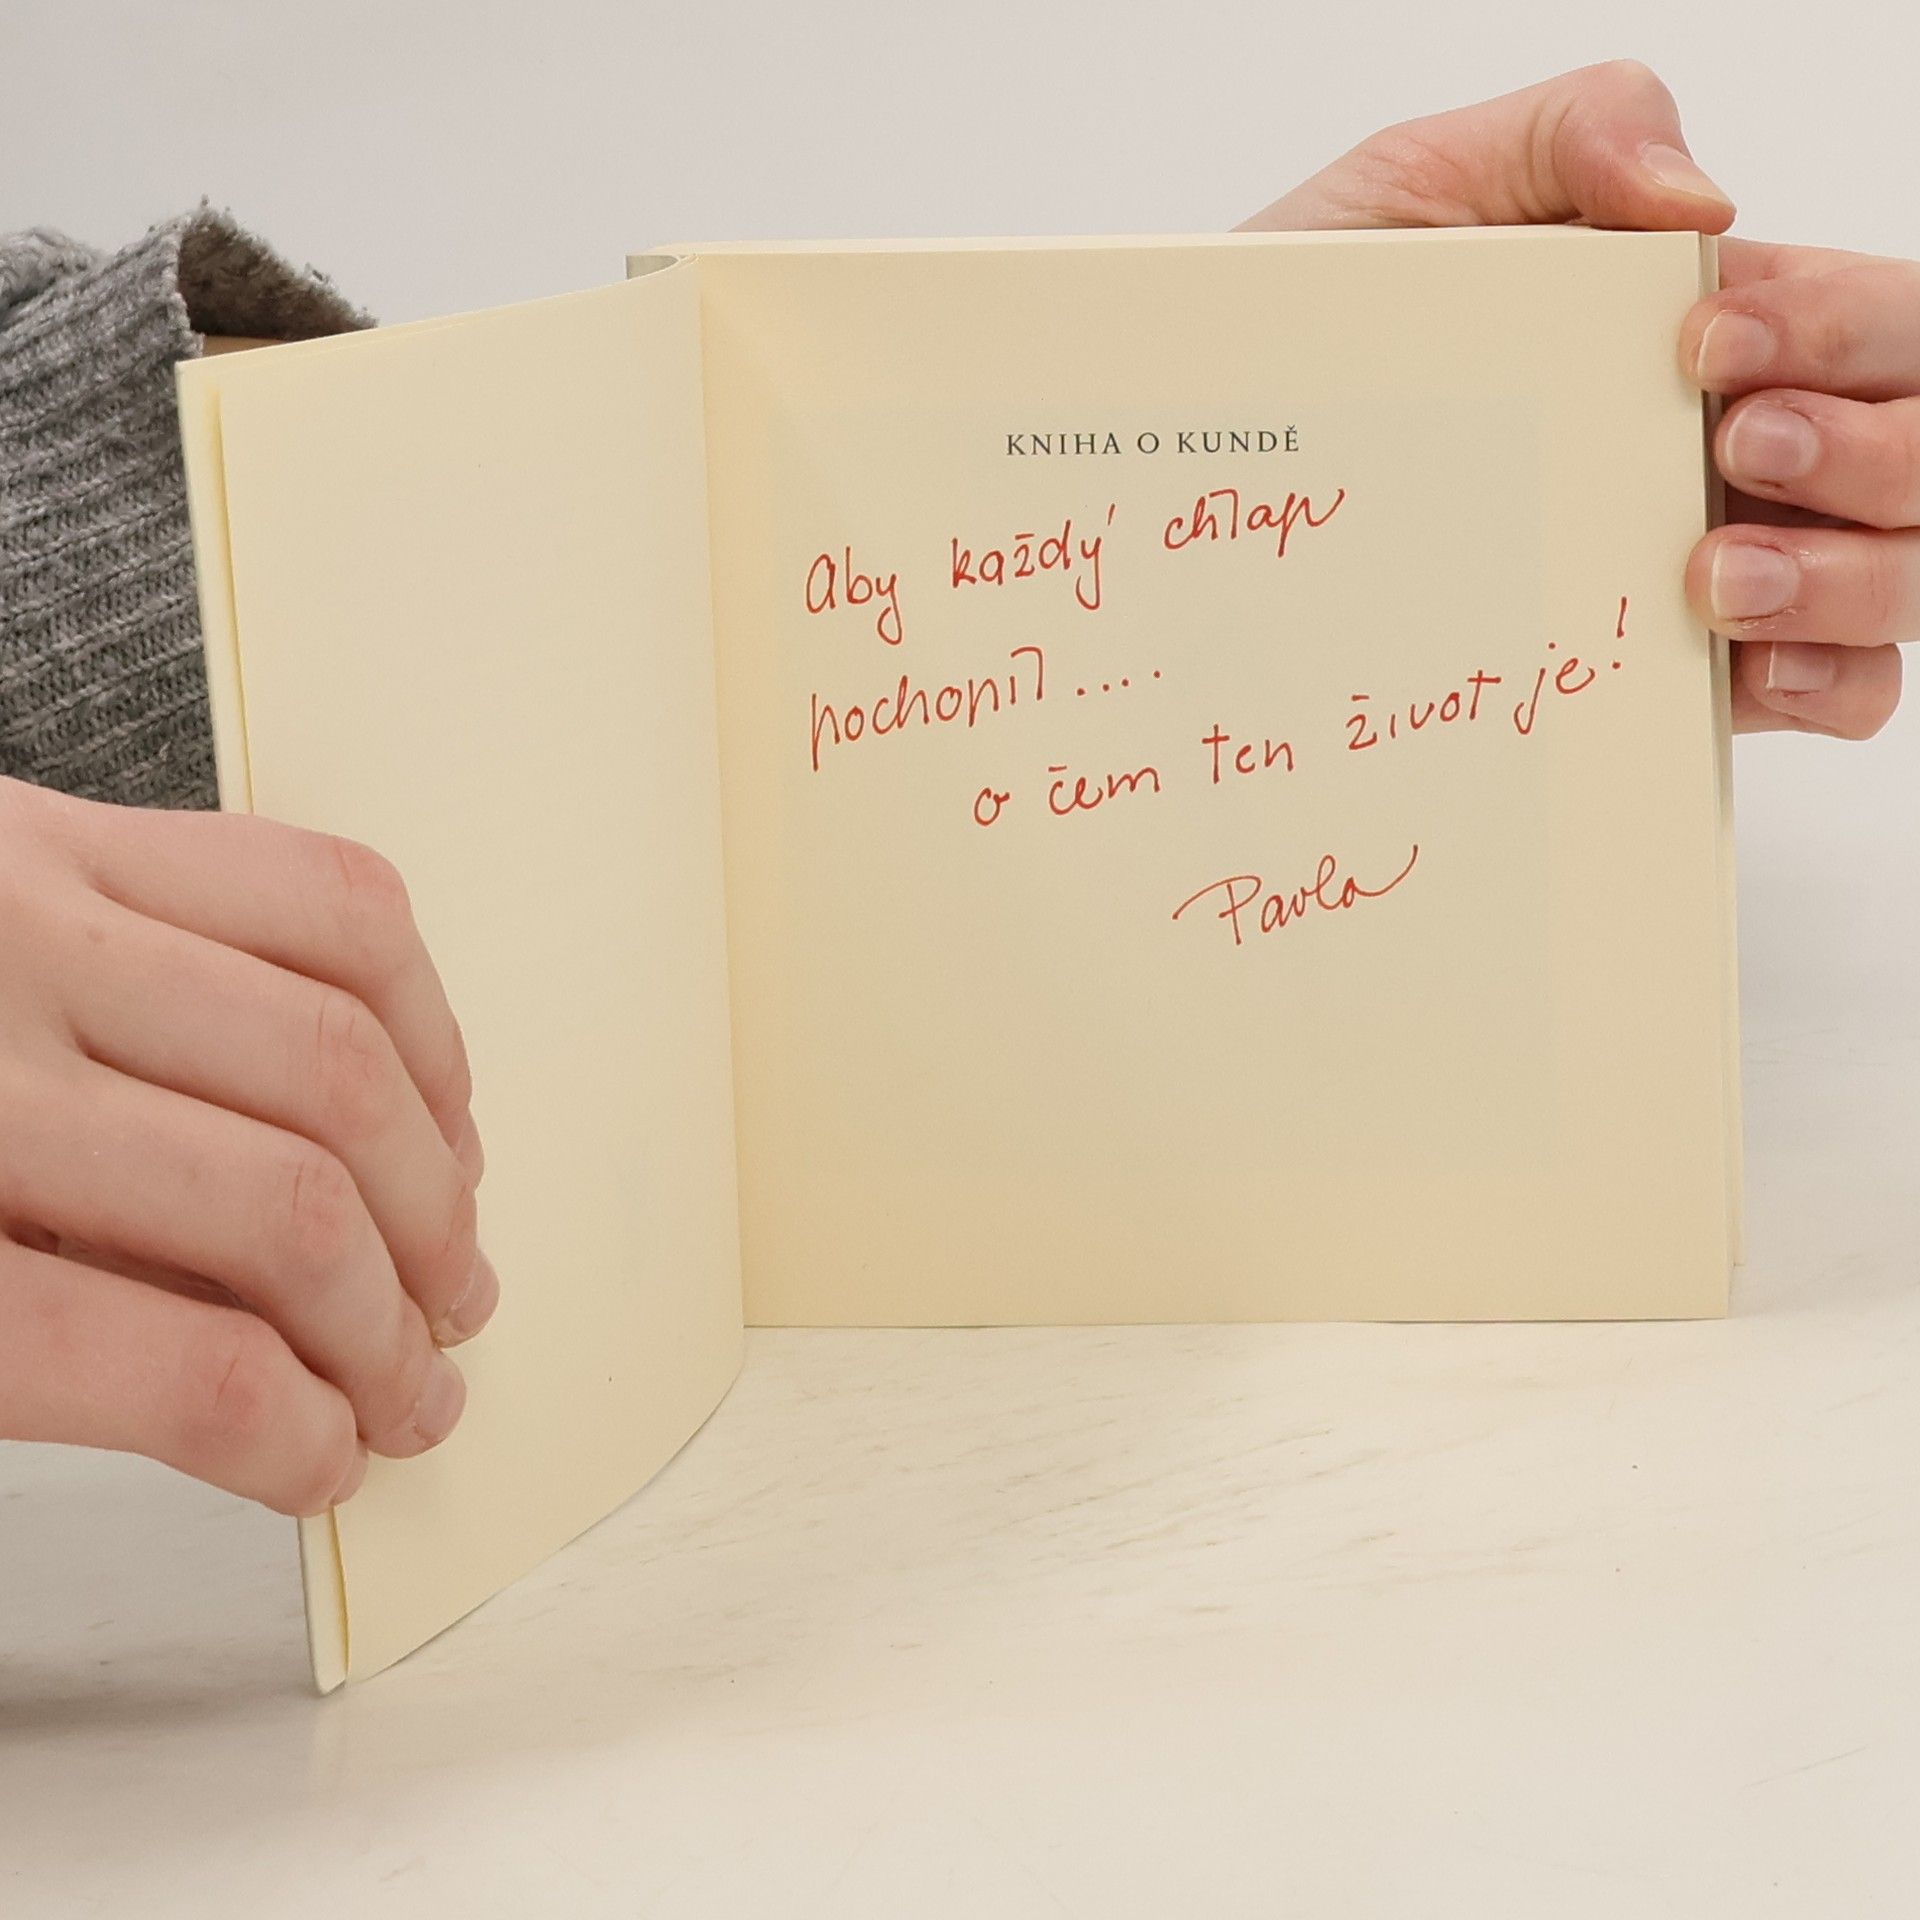 KNIHA O KUNDĚ
Aby každý chlap
pochopil....
o čem ten život je!
Pavla